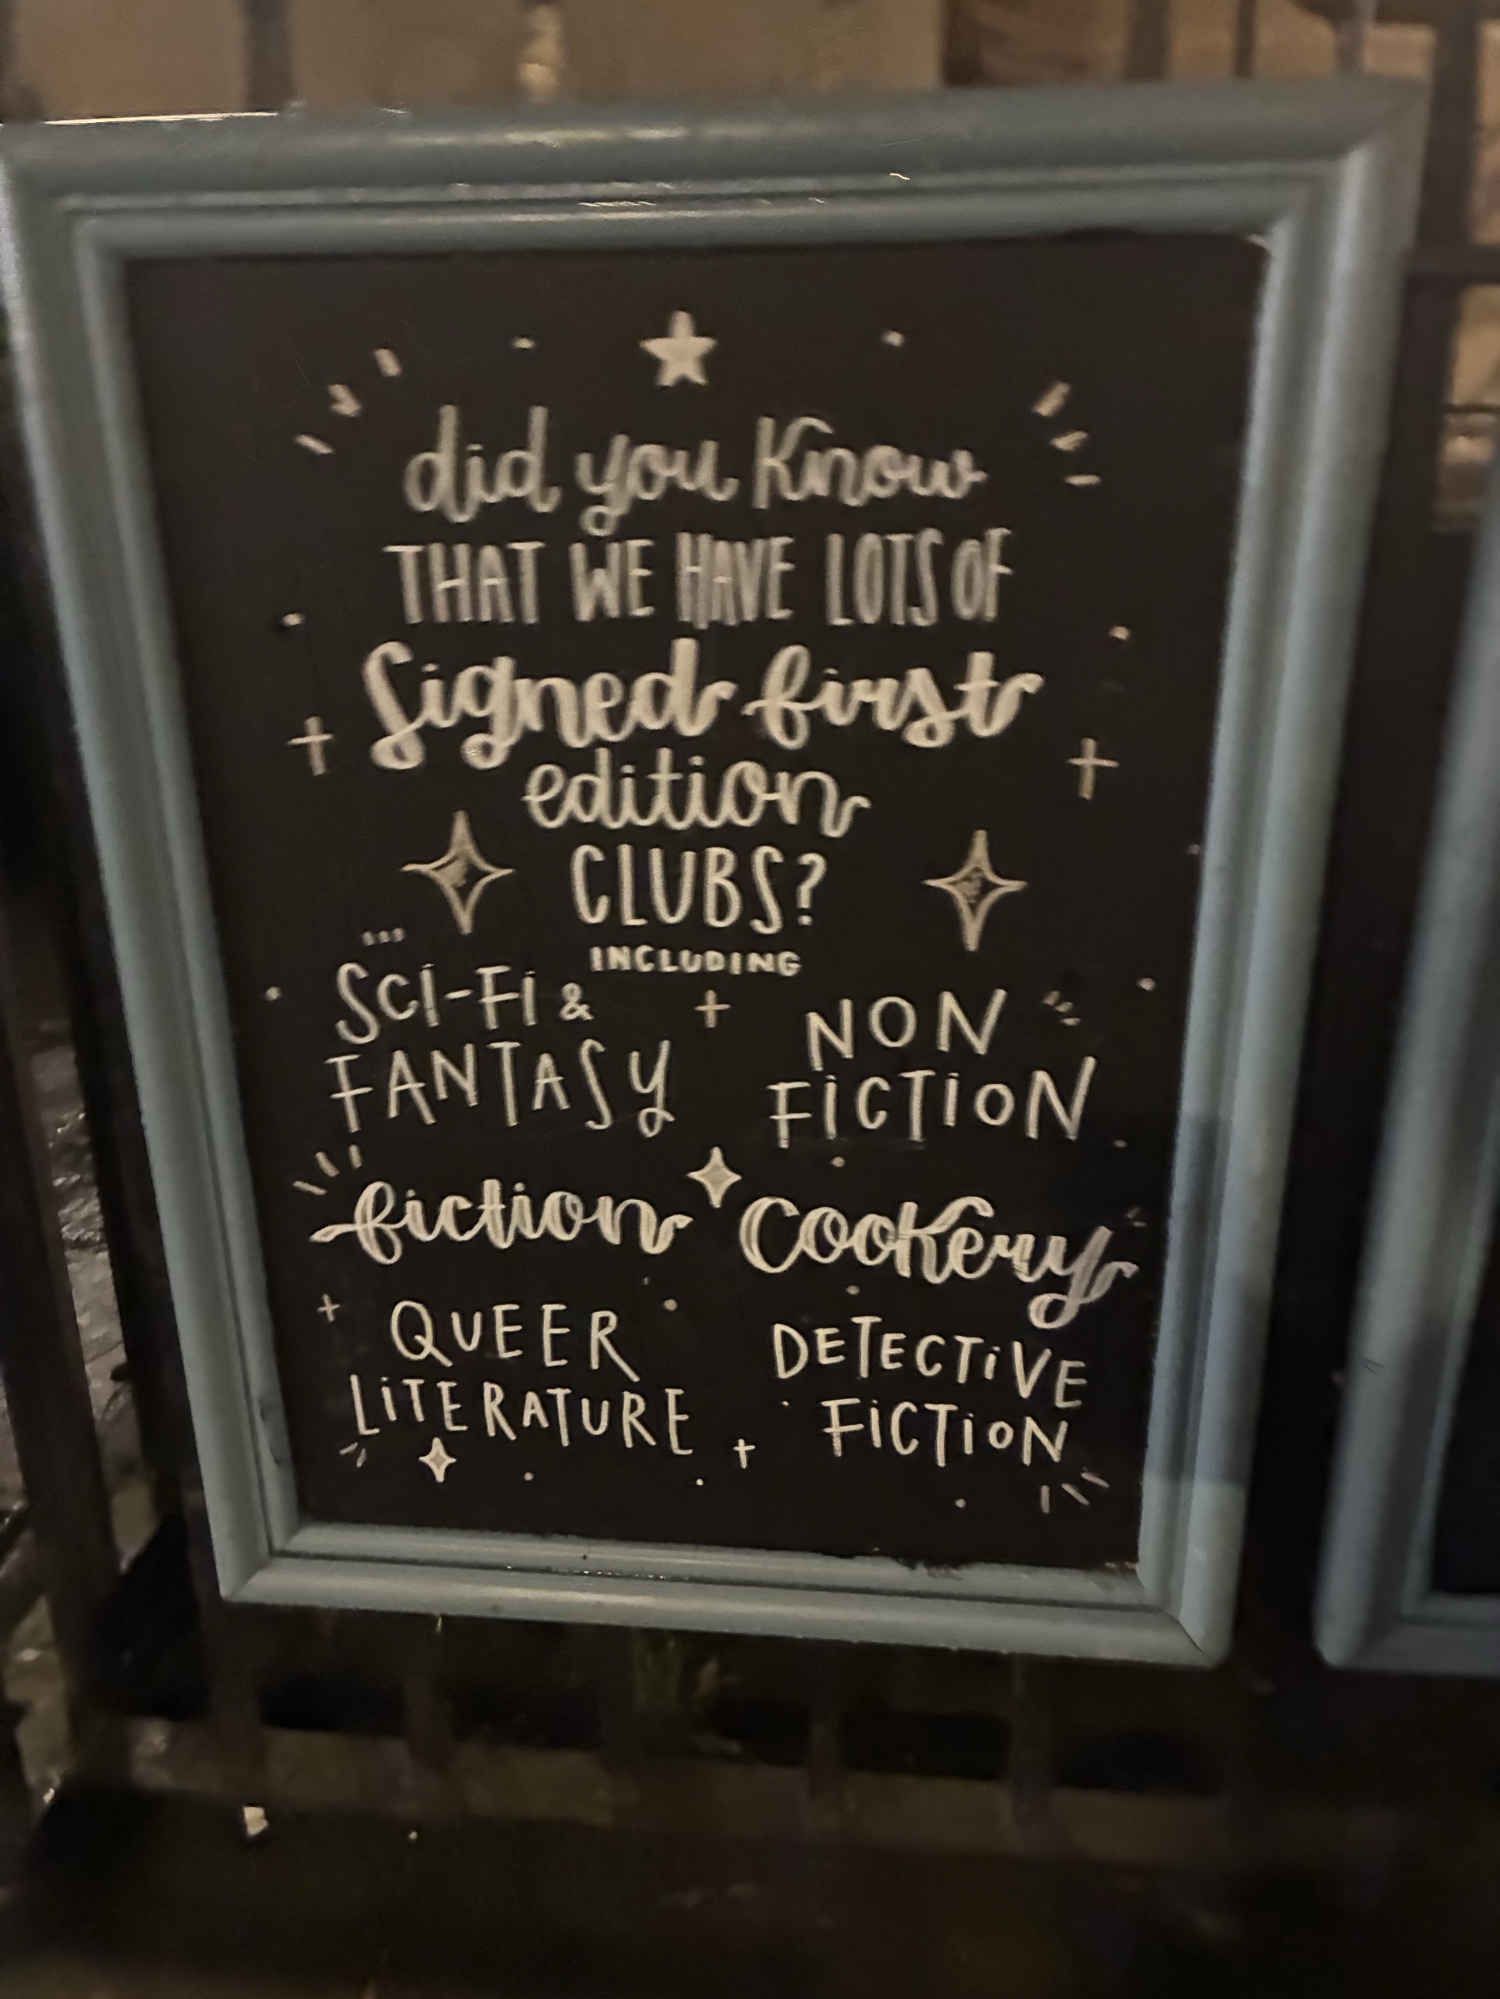 did you know
THAT WE HAVE LOTS OF
Signed first
edition
CLUBS?
INCLUDING
...
SCI-FI &
FANTASY
NON
FICTION
fiction
Cookery
QUEER
LITERATURE
DETECTIVE
FICTION